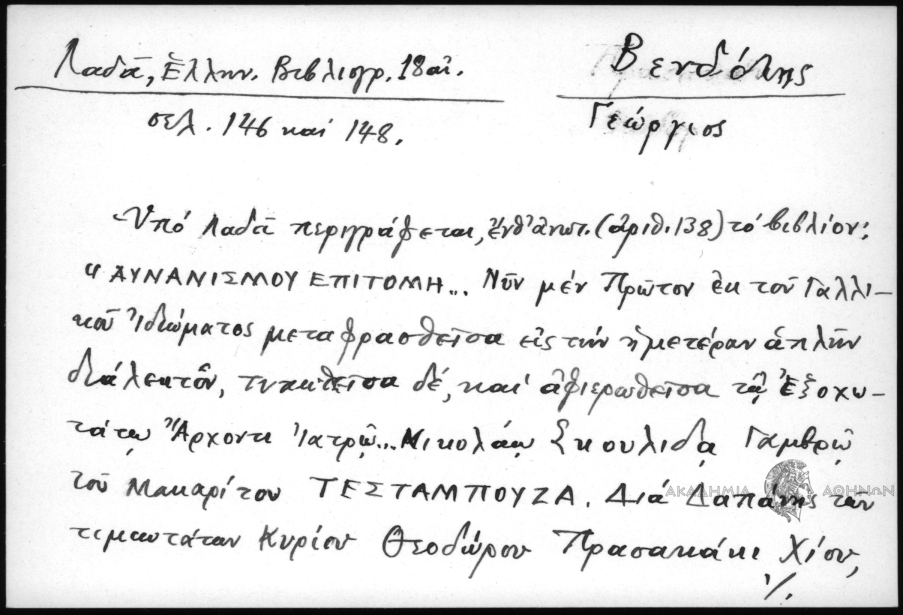 Λαδᾶ, Ἑλλην. Βιβλιογρ. 18 αἰ.
σελ. 146 καί 148.
Βενδότης
Γεώργιος
Ὑπό Λαδᾶ περιγράφεται, ἔνθ' ἀνωτ. (ἀριθ. 138) τό βιβλίον:
"ΑΥΝΑΝΙΣΜΟΥ ΕΠΙΤΟΜΗ... Νῦν μέν Πρῶτον ἐκ τοῦ Γαλλι-
κοῦ Ἰδιώματος μεταφρασθεῖσα εἰς τήν ἡμετέραν ἁπλῆν
διάλεκτον, τυπωθεῖσα δέ, καί ἀφιερωθεῖσα τῷ Ἐξοχω-
τάτῳ Ἄρχοντι Ἰατρῷ... Νικολάῳ Σκουλίδᾳ Γαμβρῷ
τοῦ Μακαρίτου ΤΕΣΤΑΜΠΟΥΖΑ. Διά Δαπάνης τῶν
τιμιωτάτων Κυρίου Θεοδώρου Πρασακάκι Χίου,
./.
ΑΚΑΔΗΜΙΑ ΑΘΗΝΩΝ